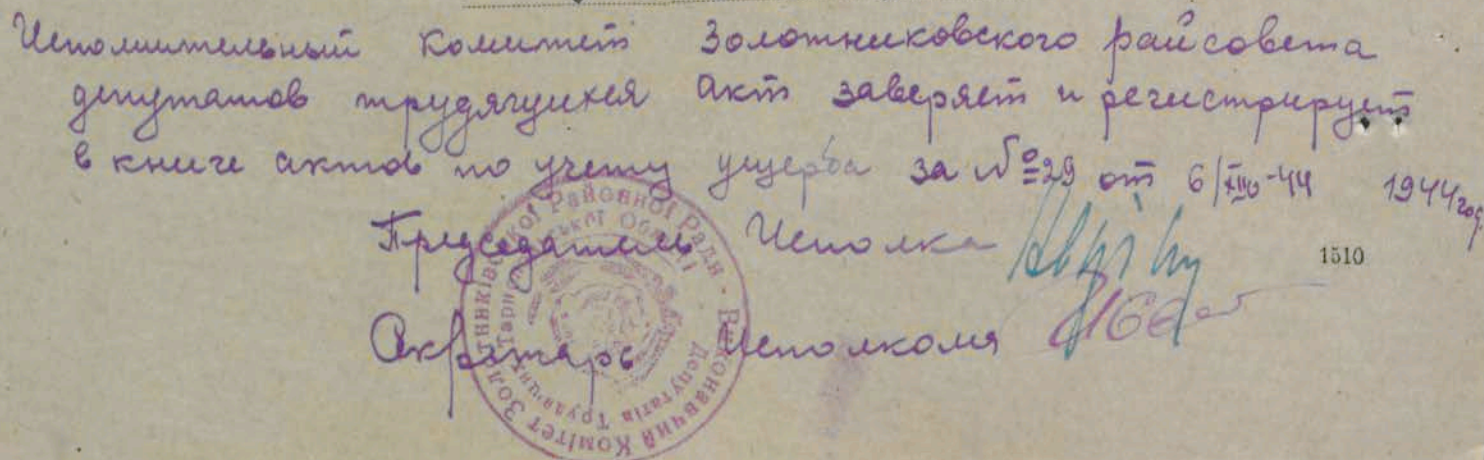 Исполнительный Комитет Золотниковского райсовета
депутатов трудящихся акт заверяет и регистрирует
в книге актов по учету ущерба за №29 от 6/XII-44 1944 год
Председатель Исполка
1510
Секретарь Исполкома
Виконавчий Комітет Золотниківської Районної Ради
Депутатів Трудящих Тарнопільської Області